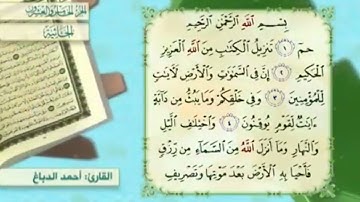 الجاثية
بِسْمِ اللَّهِ الرَّحْمَٰنِ الرَّحِيمِ
حمٓ ١ تَنزِيلُ الْكِتَٰبِ مِنَ اللَّهِ الْعَزِيزِ
الْحَكِيمِ ٢ إِنَّ فِي السَّمَٰوَٰتِ وَالْأَرْضِ لَآيَٰتٍ
لِّلْمُؤْمِنِينَ ٣ وَفِي خَلْقِكُمْ وَمَا يَبُثُّ مِن دَآبَّةٍ
ءَايَٰتٌ لِّقَوْمٍ يُوقِنُونَ ٤ وَاخْتِلَٰفِ الَّيْلِ
وَالنَّهَارِ وَمَآ أَنزَلَ اللَّهُ مِنَ السَّمَآءِ مِن رِّزْقٍ
فَأَحْيَا بِهِ الْأَرْضَ بَعْدَ مَوْتِهَا وَتَصْرِيفِ
القارئ: أحمد الدباغ